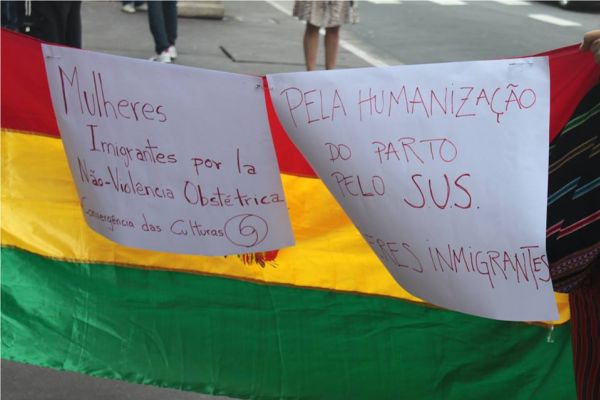 Mulheres
Imigrantes por la
Não-Violência Obstétrica
Convergência das Culturas
PELA HUMANIZAÇÃO
DO PARTO
PELO S.U.S.
ERES INMIGRANTES